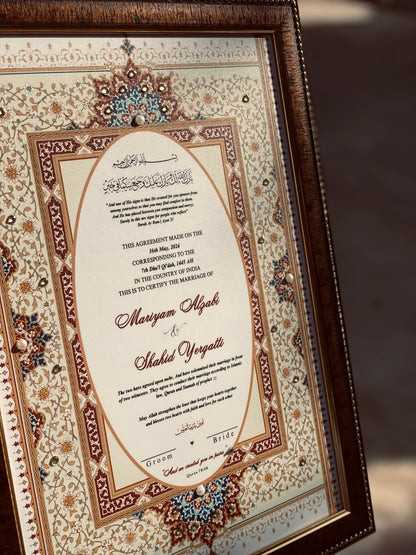 بسم الله الرحمن الرحيم
بارك الله لكما وبارك عليكما وجمع بينكما في خير
"And one of His signs is that He created for you spouses from
among yourselves so that you may find comfort in them.
And He has placed between you compassion and mercy.
Surely in this are signs for people who reflect"
Surah Ar Rum | Ayat 21
THIS AGREEMENT MADE ON THE
16th May, 2024
CORRESPONDING TO THE
7th Dhu'l Qi'dah, 1445 AH
IN THE COUNTRY OF INDIA
THIS IS TO CERTIFY THE MARRIAGE OF
Mariyam Alqabi
&
Shahid Yergatti
The two have agreed upon mahr, And have solemnised their marriage in front
of two witnesses. They agree to conduct their marriage according to Islamic
law, Quran and Sunnah of prophet ﷺ
May Allah strengthen the knot that keeps your hearts together
and blesses two hearts with faith and love for each other
Groom Bride
"And we created you in pairs"
Quran 78:08